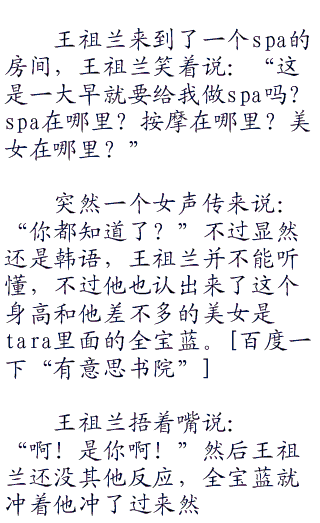 王祖兰来到了一个spa的
房间，王祖兰笑着说：“这
是一大早就要给我做spa吗？
spa在哪里？按摩在哪里？美
女在哪里？”
突然一个女声传来说：
“你都知道了？”不过显然
还是韩语，王祖兰并不能听
懂，不过他也认出来了这个
身高和他差不多的美女是
tara里面的全宝蓝。[百度一
下“有意思书院”]
王祖兰捂着嘴说：
“啊！是你啊！”然后王祖
兰还没其他反应，全宝蓝就
冲着他冲了过来然